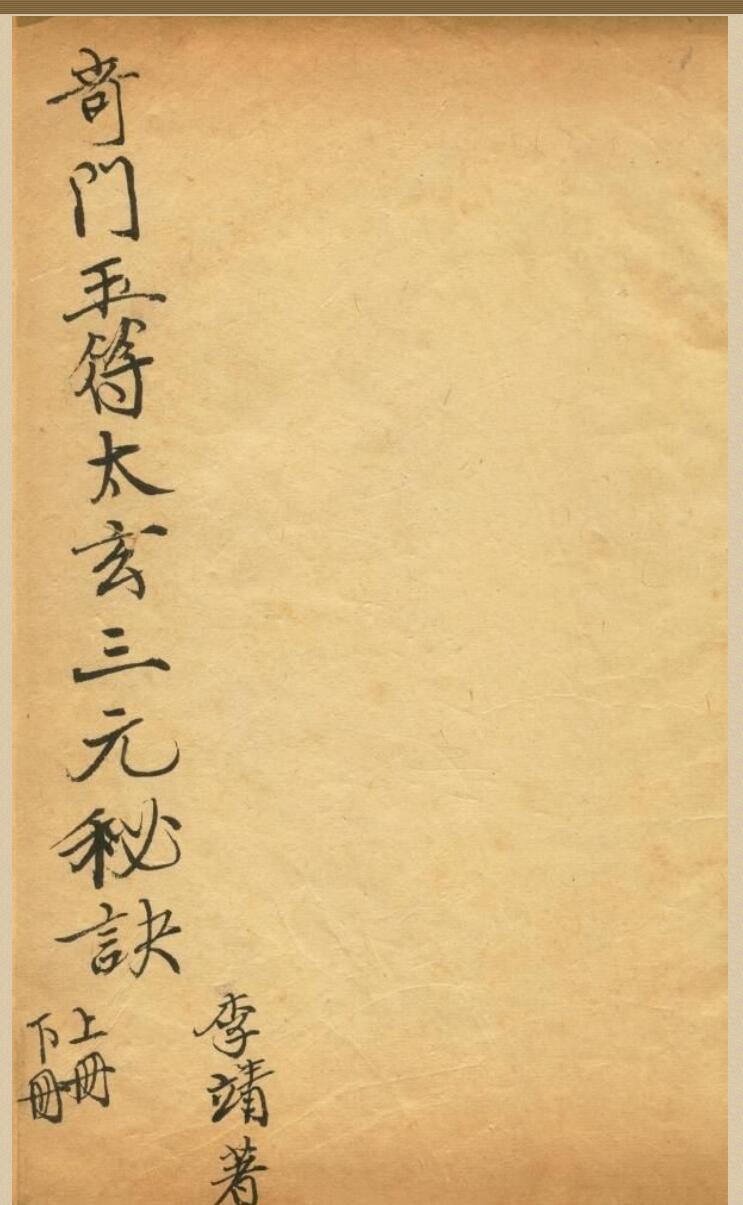 奇門玉符太玄三元秘訣
上冊
下冊
李靖著